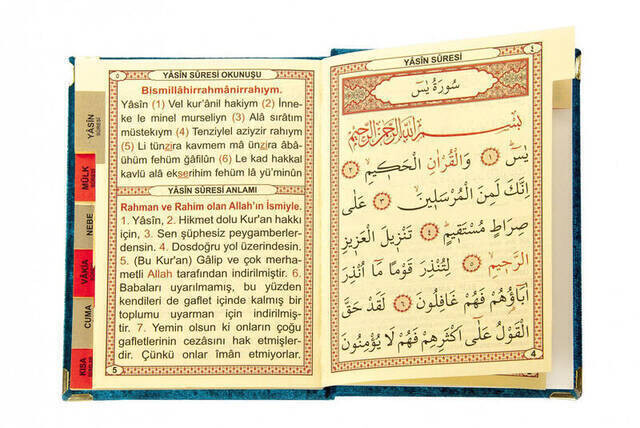 ٥
YÂSİN SÛRESİ OKUNUŞU
Bismillâhirrahmânirrahıym.
Yâsîn (1) Vel kur'ânil hakiym (2) İnne-
ke le minel murseliyn (3) Alâ sırâtım
müstekıym (4) Tenziylel aziyzir rahıym
(5) Li tünzira kavmem mâ ünzira âbâ-
ühüm fehüm ğâfilûn (6) Le kad hakkal
kavlü alâ ekserihim fehüm lâ yü'minûn
YÂSİN SÛRESİ ANLAMI
Rahman ve Rahim olan Allah'ın İsmiyle.
1. Yâsîn, 2. Hikmet dolu Kur'an hakkı
için, 3. Sen şüphesiz peygamberler-
densin. 4. Dosdoğru yol üzerindesin.
5. (Bu Kur'an) Gâlip ve çok merha-
metli Allah tarafından indirilmiştir. 6.
Babaları uyarılmamış, bu yüzden
kendileri de gaflet içinde kalmış bir
toplumu uyarman için indirilmiş-
tir. 7. Yemin olsun ki onların çoğu
gafletlerinin cezasını hak etmişler-
dir. Çünkü onlar îmân etmiyorlar.
5
YÂSİN
SÛRESİ
MÜLK
SÛRESİ
NEBE
VÂKIA
CUMA
KISA
YÂSİN SÛRESİ
٤
سُورَةُ يٰسٓ
بِسْمِ اللّٰهِ الرَّحْمٰنِ الرَّحِيمِ
يٰسٓ ١ وَالْقُرْاٰنِ الْحَكِيمِ ٢
اِنَّكَ لَمِنَ الْمُرْسَلِينَ ٣ عَلٰى
صِرَاطٍ مُسْتَقِيمٍ ٤ تَنْزِيلَ الْعَزِيزِ
الرَّحِيمِ ٥ لِتُنْذِرَ قَوْمًا مَٓا اُنْذِرَ
اٰبَٓاؤُهُمْ فَهُمْ غَافِلُونَ ٦ لَقَدْ حَقَّ
الْقَوْلُ عَلٰٓى اَكْثَرِهِمْ فَهُمْ لَا يُؤْمِنُونَ
4